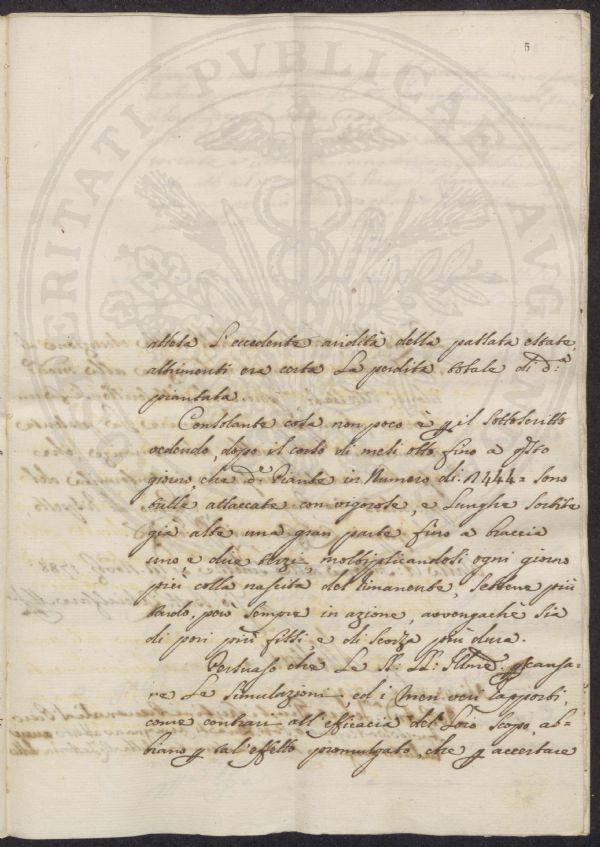 5
attesa l'eccedente aridità della passata estate,
altrimenti era certa la perdita totale di d.ª
piantata.
Consolante cosa non poco è p il Sottoscritto
vedendo, dopo il corso di mesi otto fino a qsto
giorno, che d.e Piante in Numero di: 1444= sono
tutte attaccate con vigorose, e lunghe sortite
già alte una gran parte fino a braccia
uno e due terzi moltiplicandosi ogni giorno
più colla nascita del rimanente, sebbene più
tardo, però sempre in azione, avvengache sia
di pori più fitti, e di scorza più dura.
Persuaso che Le SS: LL: Illme: p causa-
re Le simulazioni, ed i men veri rapporti,
come contrari all'efficacia del Loro scopo, ab-
biano p tal'effetto promulgato, che p accertare
PROSPERITATI PVBLICAE AVG